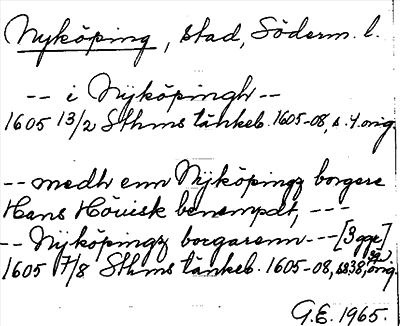 Nyköping, stad, Söderm. l.
-- i Nyköpingh --
1605 13/2 Sthms tänkeb. 1605-08, s. 4. orig.
-- medh enn Nyköpingz borgere
Hans Höuisk benempdt, ---
-- Nyköpingz borgarenn --- [3 ggr]
1605 7/8 Sthms tänkeb. 1605-08, s. 38, orig.
G.E. 1965.